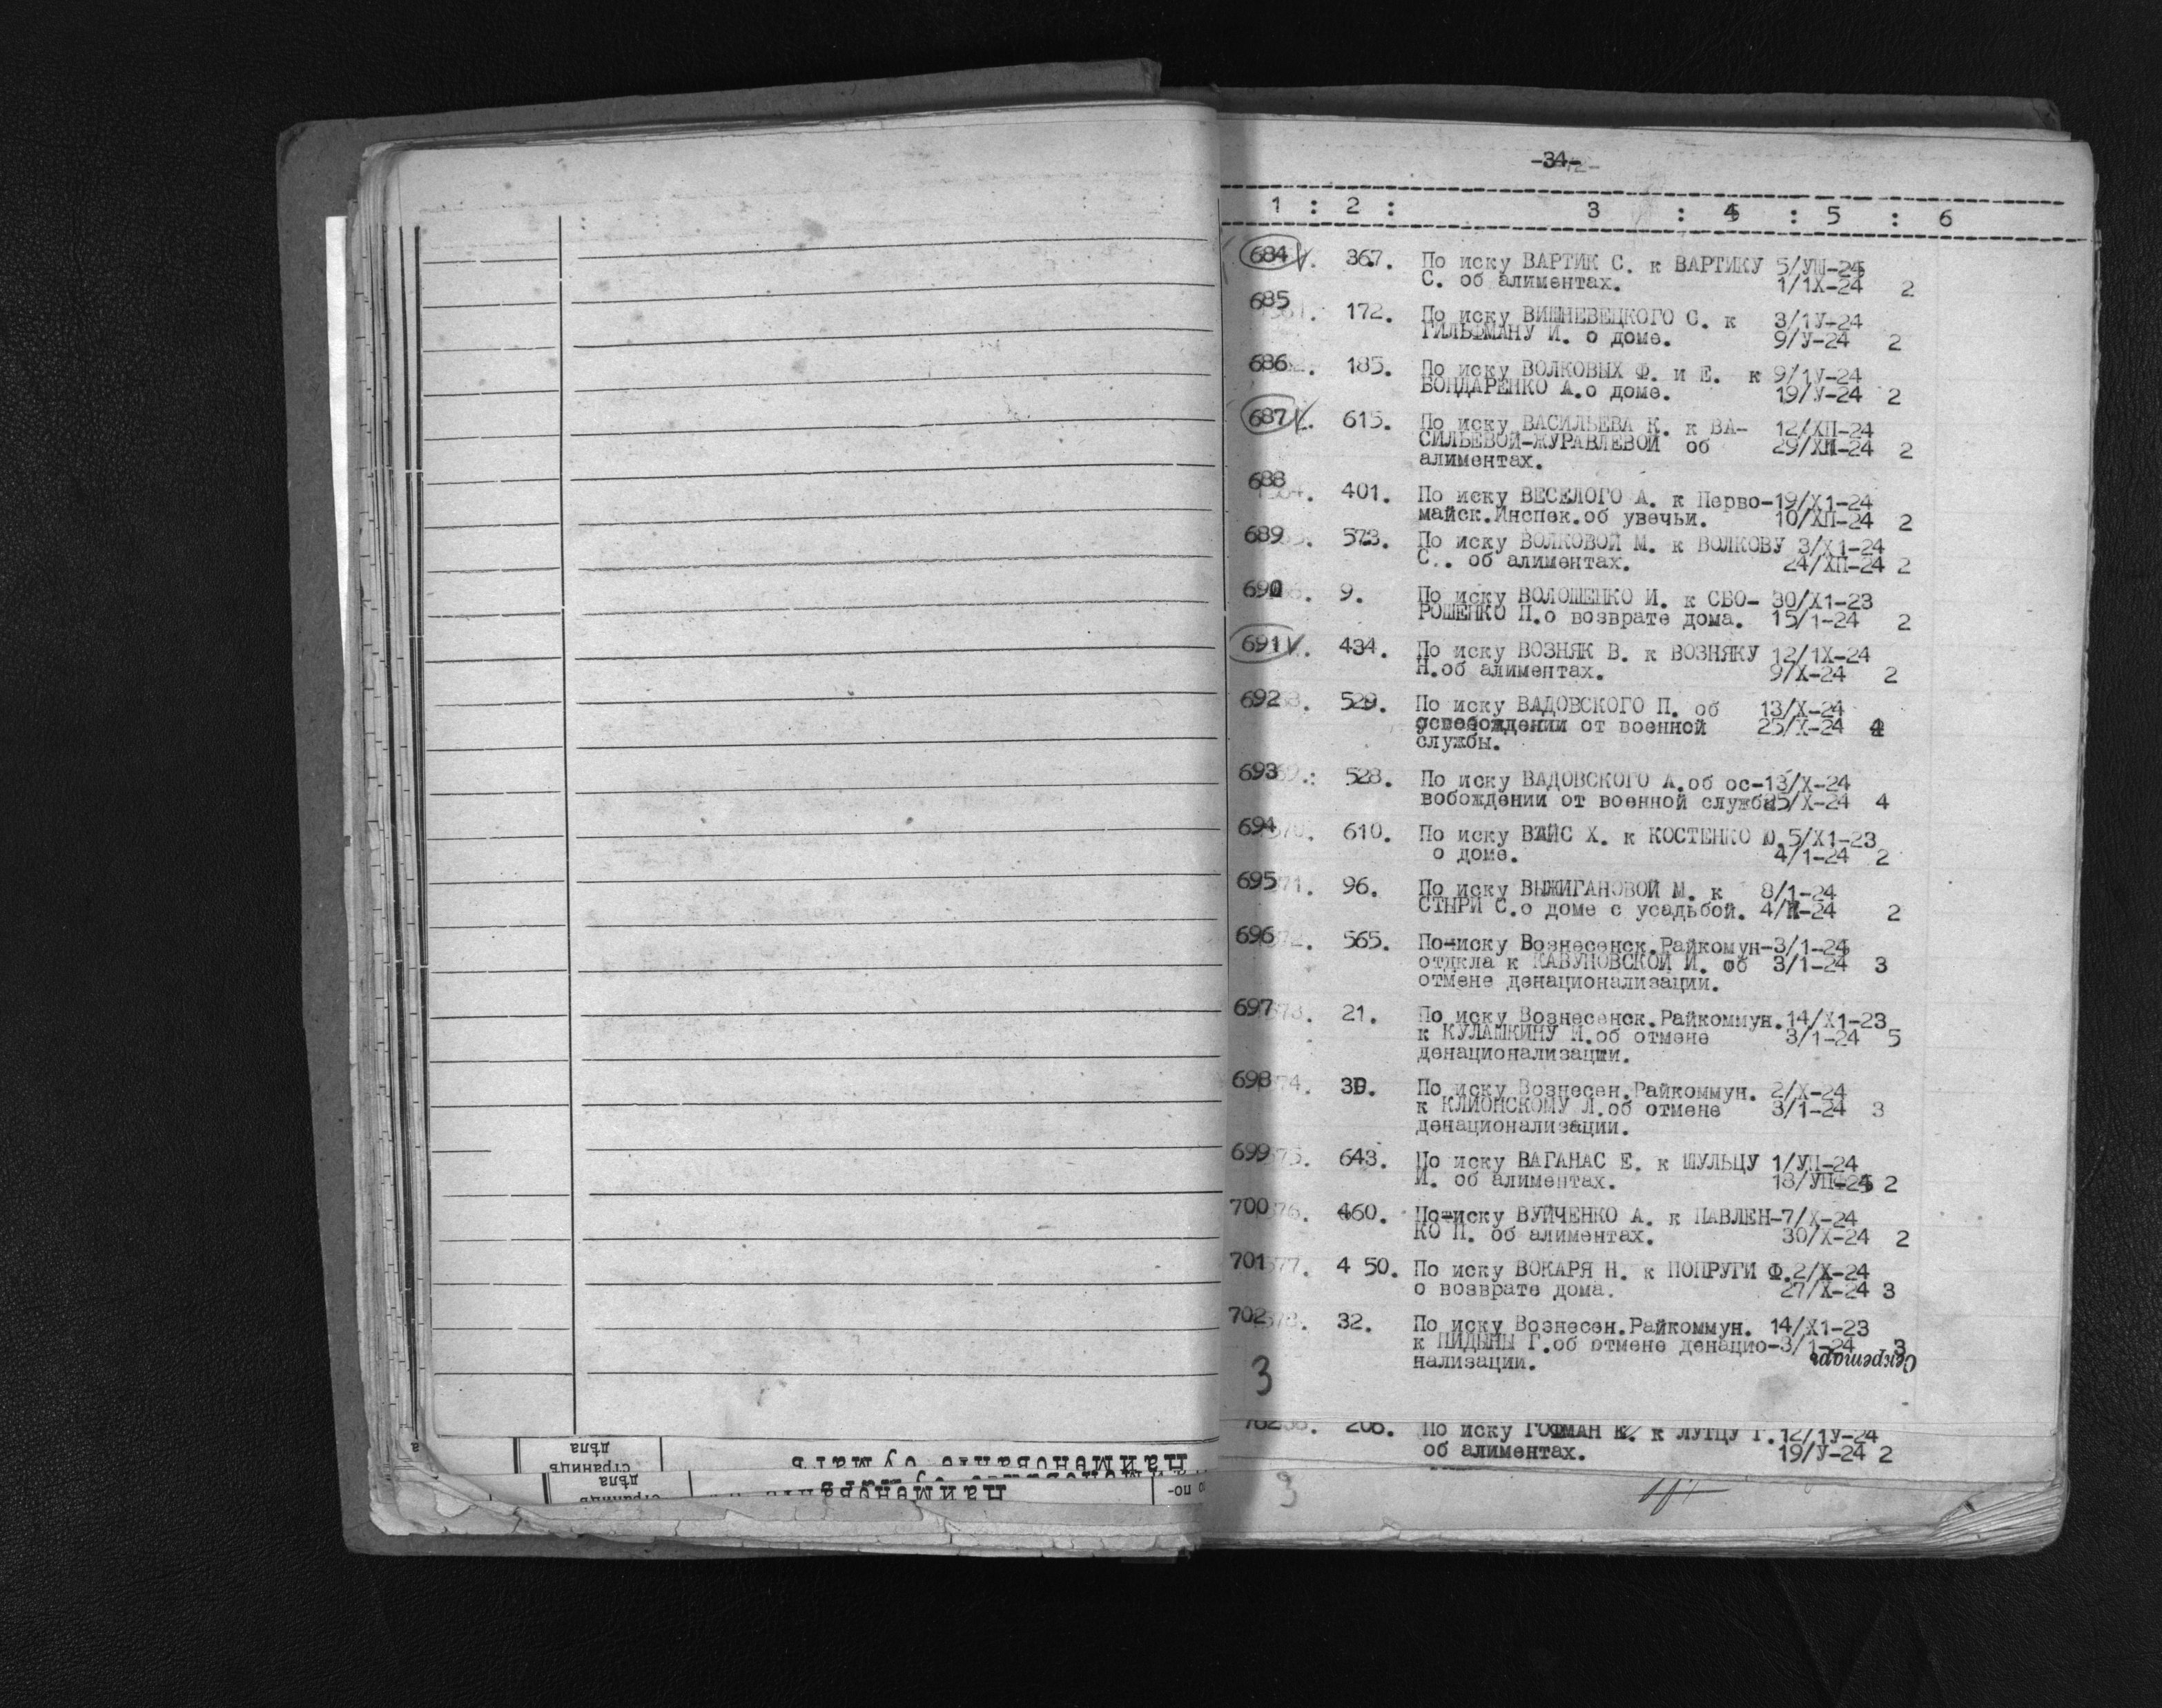 -34-
1 : 2 : 3 : 4 : 5 : 6
684 V. 367. По иску ВАРТИК С. к ВАРТИКУ 5/УШ-24
С. об алиментах. 1/1Х-24 2
685 172. По иску ВИШНЕВЕЦКОГО С. к 3/1У-24
ГИЛЬФМАНУ И. о доме. 9/У-24 2
686 185. По иску ВОЛКОВЫХ Ф. и Е. к 9/1У-24
БОНДАРЕНКО А.о доме. 19/У-24 2
687 V. 615. По иску ВАСИЛЬЕВА К. к ВА- 12/ХП-24
СИЛЬЕВОЙ-ЖУРАВЛЕВОЙ об 29/ХП-24 2
алиментах.
688 401. По иску ВЕСЕЛОГО А. к Перво-19/Х1-24
майск.Инспек.об увечьи. 10/ХП-24 2
689 573. По иску ВОЛКОВОЙ М. к ВОЛКОВУ 3/Х1-24
С.. об алиментах. 24/ХП-24 2
690 9. По иску ВОЛОШЕНКО И. к СБО- 30/Х1-23
РОШЕНКО П.о возврате дома. 15/1-24 2
691 V. 434. По иску ВОЗНЯК В. к ВОЗНЯКУ 12/1Х-24
Н.об алиментах. 9/Х-24 2
692 529. По иску ВАДОВСКОГО П. об 13/Х-24
освобождении от военной 25/Х-24 4
службы.
693 528. По иску ВАДОВСКОГО А.об ос-13/Х-24
вобождении от военной службы 25/Х-24 4
694 610. По иску ВАЙС Х. к КОСТЕНКО Ю.5/Х1-23
о доме. 4/1-24 2
695 96. По иску ВЫЖИГАНОВОЙ М. к 8/1-24
СТЫРИ С.о доме с усадьбой. 4/-24 2
696 565. По-иску Вознесенск.Райкомун-3/1-24
отдкла к КАВУНОВСКОЙ И. об 3/1-24 3
отмене денационализации.
697 21. По иску Вознесенск.Райкоммун.14/Х1-23
к КУЛАШКИНУ И.об отмене 3/1-24 5
денационализации.
698 30. По иску Вознесен.Райкоммун. 2/Х-24
к КЛИОНСКОМУ Л.об отмене 3/1-24 3
денационализации.
699 643. По иску ВАГАНАС Е. к ШУЛЬЦУ 1/УП-24
И. об алиментах. 18/УП-24 2
700 460. По-иску ВУЙЧЕНКО А. к ПАВЛЕН-7/Х-24
КО П. об алиментах. 30/Х-24 2
701 4 50. По иску ВОКАРЯ Н. к ПОПРУГИ Ф.2/Х-24
о возврате дома. 27/Х-24 3
702 32. По иску Вознесен.Райкоммун. 14/Х1-23
к ПИДЫНЫ Г.об отмене денацио-3/1-24 3
нализации.
Секретарь
3
206. По иску ГОФМАН Е. к ЛУТЦУ Г.12/1У-24
об алиментах. 19/У-24 2
3
страницъ
дѣла
наименованіе бумагъ
страницъ
дѣла
наименованіе
по-